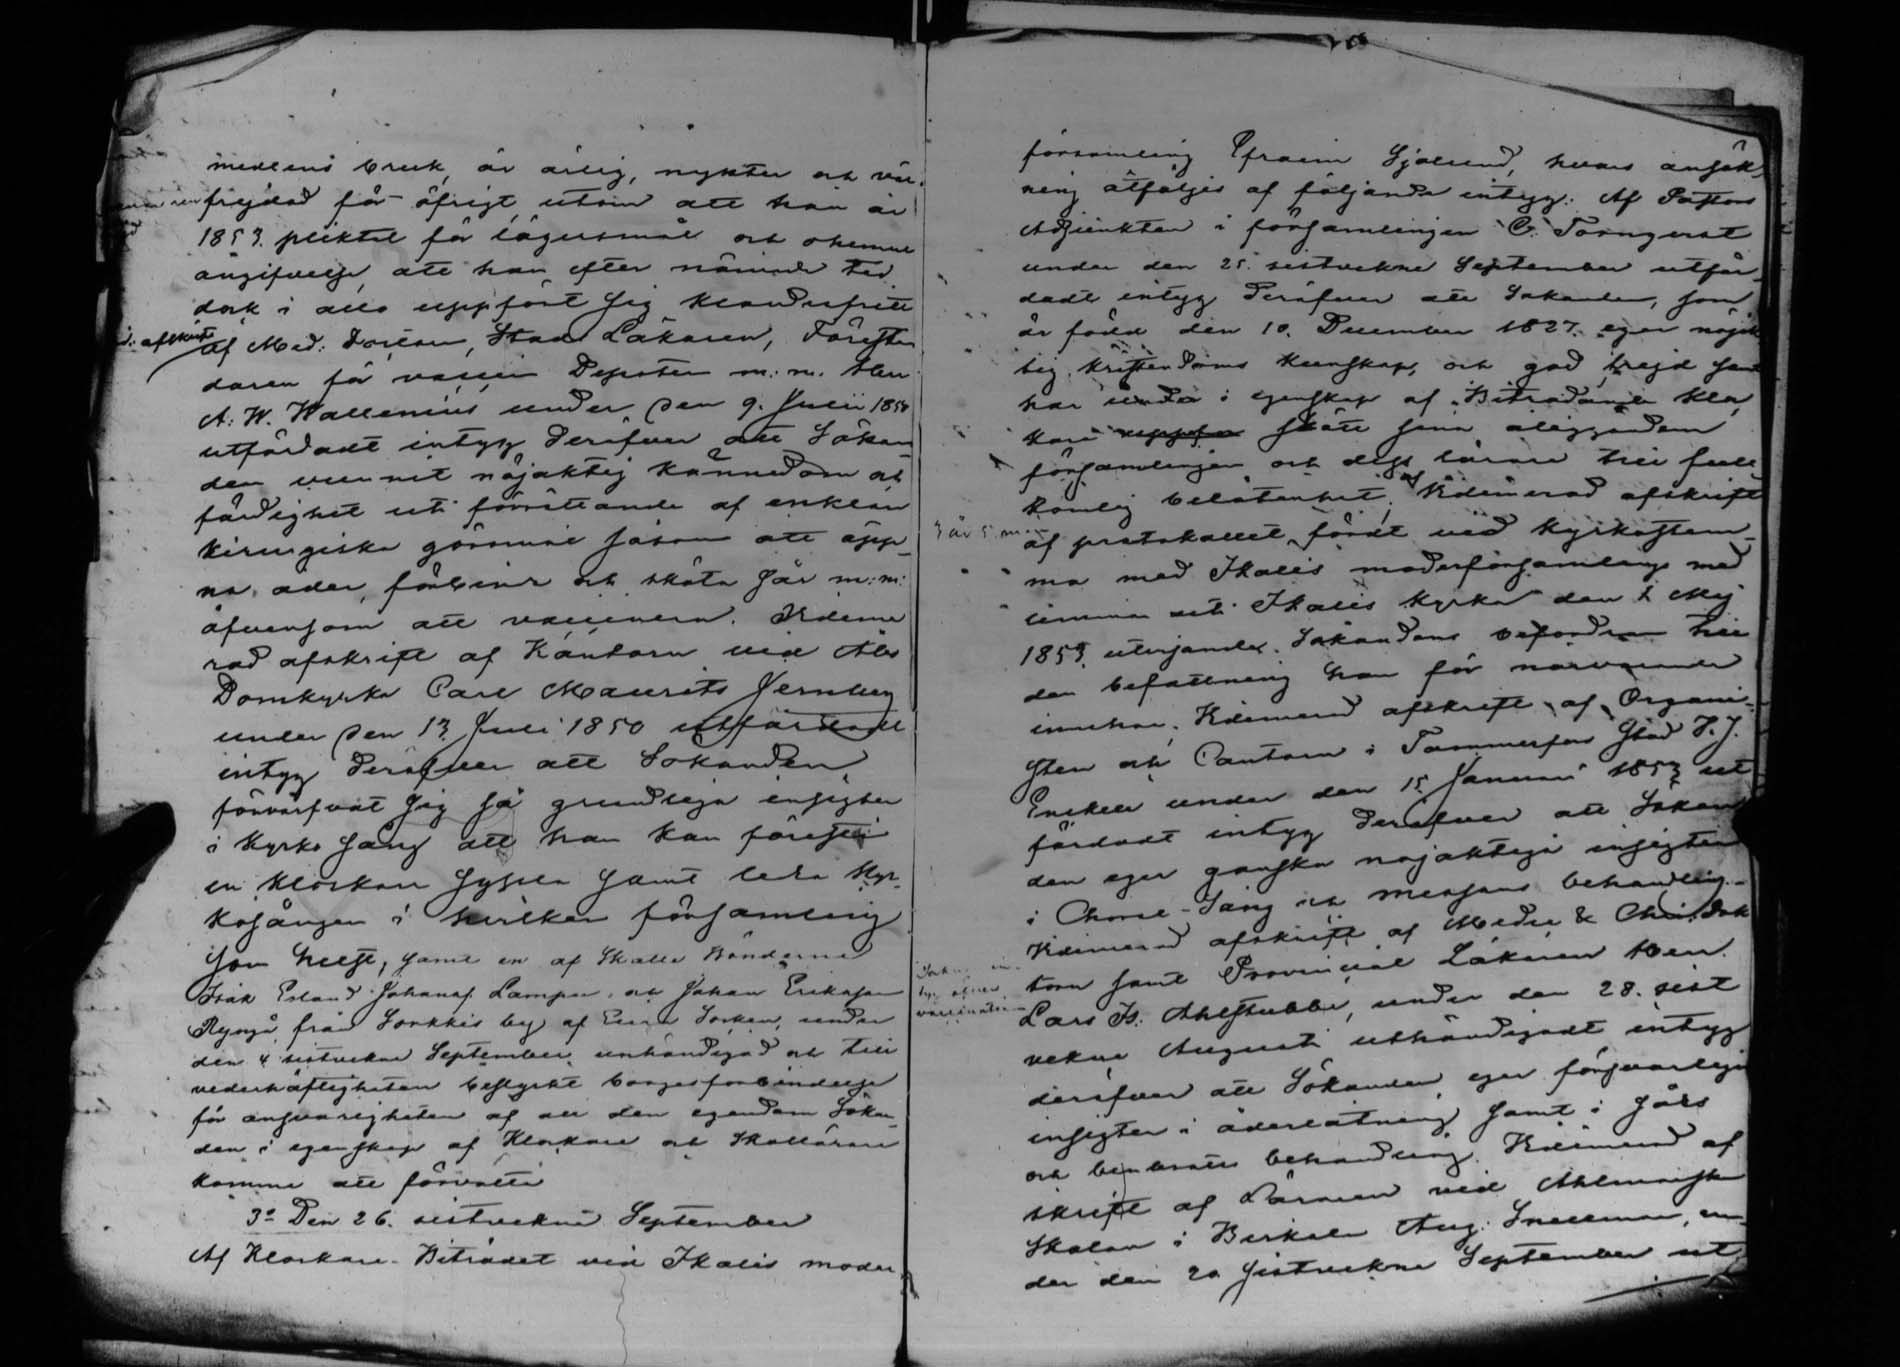 medlens bruk, är ärlig, nykter och väl
frejdad för öfrigt utom att han är
1853 pliktat för lägersmål och
angifvelse, att han efter nämnde tid
dock i allo uppfört sig klanderfritt
af Med: Doctorn, Stads Läkaren, Förestån
daren för vaccin Depoten m:m. Herr
A. W. Wallenius under den 9. Julii 1850
utfärdadt intyg deröfver att Sökan
den vunnit nöjaktig kännedom och
färdighet uti förrättande af enklare
kirurgiska göromål såsom att öpp-
na åder, förbinda och sköta sår m:m:
äfvensom att vaccinera. Vidime
rad afskrift af Kantorn vid Åbo
Domkyrka Carl Maurits Jernberg
under den 13 Juli 1850 utfärdadt
intyg deröfver att Sökanden
förvärfvat sig så grundliga insigter
i Kyrko sång att han kan förestå
en Klockare syssla samt leda Kyr-
kosången i hvilken församling
som helst, samt en af Skatte Bönderne
Isak Johansson Lamppu och Johan Eriksson
från by af Socken, under
den 4 sistvekne September unhändigad och till
vederhäftigheten bestyrkt borgesförbindelse
för ansvarigheten af all den egendom Sökan-
den i egenskap af Klockare och Skollärare
komme att förvalta
3o Den 26. sistvekne September
Af Klockare-Biträdet vid Ikalis moder
afskrift
församling Efraim Sjölund, hvars ansök-
ning åtföljes af följande intyg: Af Pastors
Adjunkten i församlingen C. Törnqvist
under den 25. sistvekne September utfär-
dadt intyg deröfver att Sökanden, som
är född den 10. December 1827. eger nöjak
tig kristendoms kunskap, och god frejd samt
har i egenskap af Biträdande Kloc
kare skött sina åligganden
församlingen och dess lärare till full
komlig belåtenhet, Vidimerad afskrift
af protokollet, fördt vid Kyrkostäm-
ma med Ikalis moderförsamlings med
lemmar uti Ikalis Kyrka den 1 Maj
1853 utvisande Sökandens befordran till
den befattning han för närvarande
innehar, Vidimerad afskrift af Organi-
sten och Cantorn i Tammerfors Stad J. J.
under den 15 Januari 1853 ut
färdadt intyg deröfver att Sökan
den eger ganska nöjaktiga insigter
i Choral-Sång och behandling
Vidimerad afskrift af Medic & Chir. Dok
torn samt Provincial Läkaren Herr
Lars Is. Ahlstubbe, under den 28. sist
vekne Augusti uthändigadt intyg
deröfver att Sökanden eger försvarliga
insigter i åderlåtning samt i sårs
och benbrotts behandling. Vidimerad af
skrift af Läraren vid Ahlmanska
Skolan i Birkala Aug. Snellman, un-
der den 20 sistvekne September ut